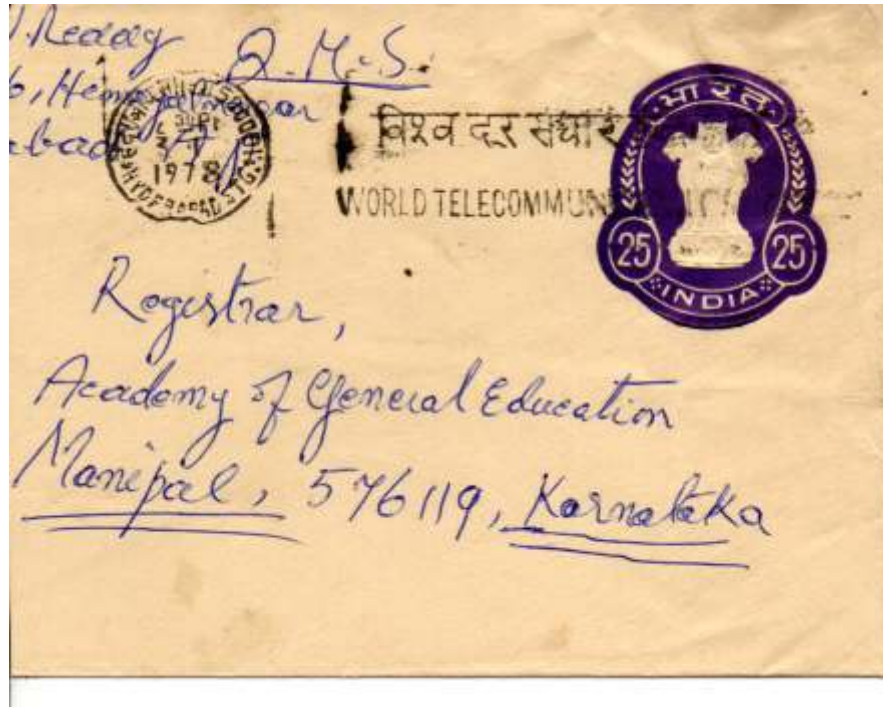 Reddy Q.M.S.
1978
HYDERABAD
विश्व दूर संचार
WORLD TELECOMMUN
भारत
25 25
INDIA
Registrar,
Academy of General Education
Manipal, 576119, Karnataka